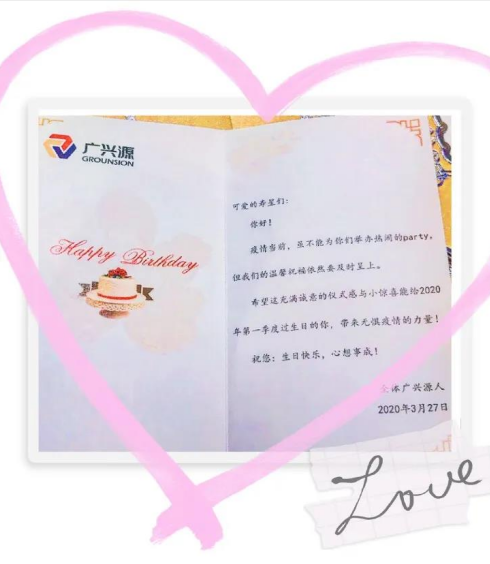 广兴源
GROUNSION
Happy Birthday
可爱的寿星们:
你好!
疫情当前,虽不能为你们举办热闹的party,
但我们的温馨祝福依然要及时呈上。
希望这充满诚意的仪式感与小惊喜能给2020
年第一季度过生日的你,带来无惧疫情的力量!
祝您:生日快乐,心想事成!
全体广兴源人
2020年3月27日
Love